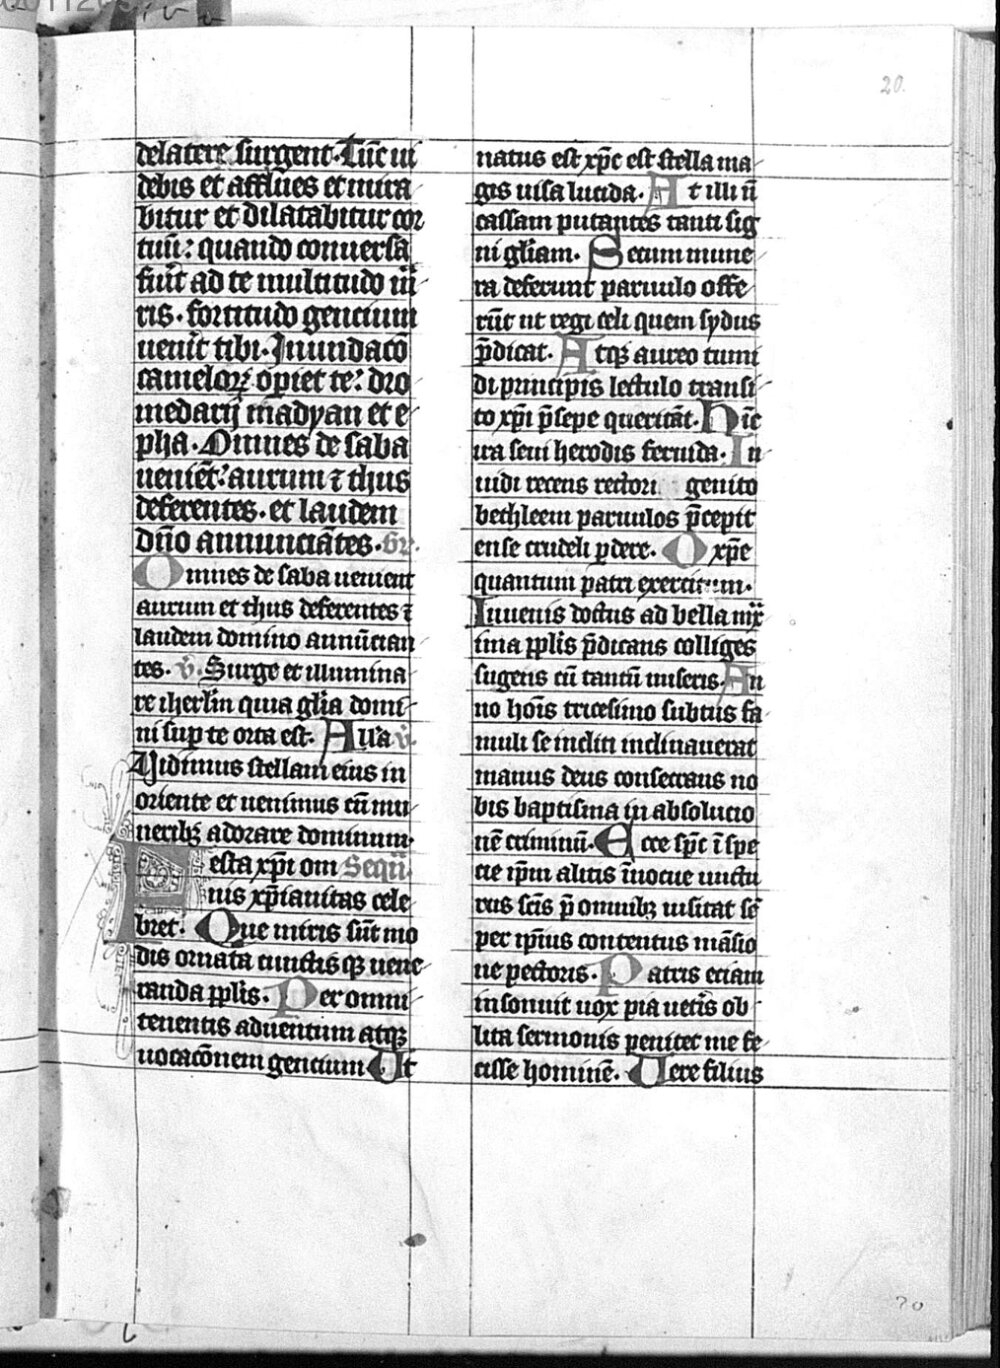 20.
delatere surgent. Tūc ui
debis et afflues et mira
bitur et dilatabitur cor
tuū: quando conuersa
fiūt ad te multitudo m̄
ris. fortitudo gencium
uenīt tibi. Inundacō
camelorꝫ opiet te: dro
medarij madyan et e
pha. Omnes de saba
ueniēt: aurum ⁊ thus
deferentes. et laudem
dn̄o annunciātes. Gr.
Omnes de saba uenient
aurum et thus deferentes ⁊
laudem domino annūcian
tes. v̄. Surge et illumina
re iherlm̄ quia glīa domi
ni sup te orta est. Alla v̄
Uidimus stellam eius in
oriente et uenimus cū mu
neribꝫ adorare dominum.
Festa xp̄i om Seqū
nis xp̄ianitas cele
bret. Que miris sūt mo
dis ornata cunctis qꝫ uene
randa pplīs. Per omni
tenentis aduentum atqꝫ
uocacōnem gencium Ut
natus est xp̄c est stella ma
gis uisa lucida. At illi n̄
cassam putantes tanti sig
ni glīam. Secum mune
ra deferunt paruulo offe
rūt ut regi celi quem sydus
p̄dicat. Atqꝫ aureo tumi
di principis lectulo transi
to xp̄i p̄sepe queritāt. Hīc
ira seui herodis feruida. In
uidi recens rectori genito
bethleem paruulos p̄cepit
ense crudeli ꝑdere. O xp̄e
quantum patri exercitum.
Iuuenis doctus ad bella mx̄
ima pplīs p̄dicans colliges
sugens cū tantū miseris. An
no hoīs tricesimo subtus fa
muli se incliti inclinauerat
manus deus consecrans no
bis baptisma in absolucio
nē criminū. Ecce spc̄ ī spe
cie ip̄m alitis īnocue unctu
rus scīs p̄ omnibꝫ uisitat sē
per ip̄ius contentus māsio
ne pectoris. Patris eciam
insonuit uox pia uetīs ob
lita sermonis penitet me fe
cisse hominē. Uere filius
20